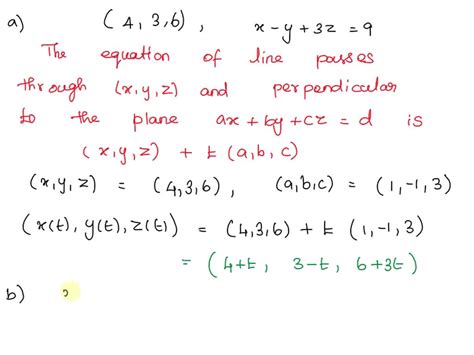 a) (4,3,6), x-y+3z=9
The equation of line passes
through (x,y,z) and perpendicular
to the plane ax+by+cz=d is
(x,y,z) + t(a,b,c)
(x,y,z) = (4,3,6), (a,b,c) = (1,-1,3)
(x(t), y(t), z(t)) = (4,3,6) + t (1,-1,3)
= (4+t, 3-t, 6+3t)
b)